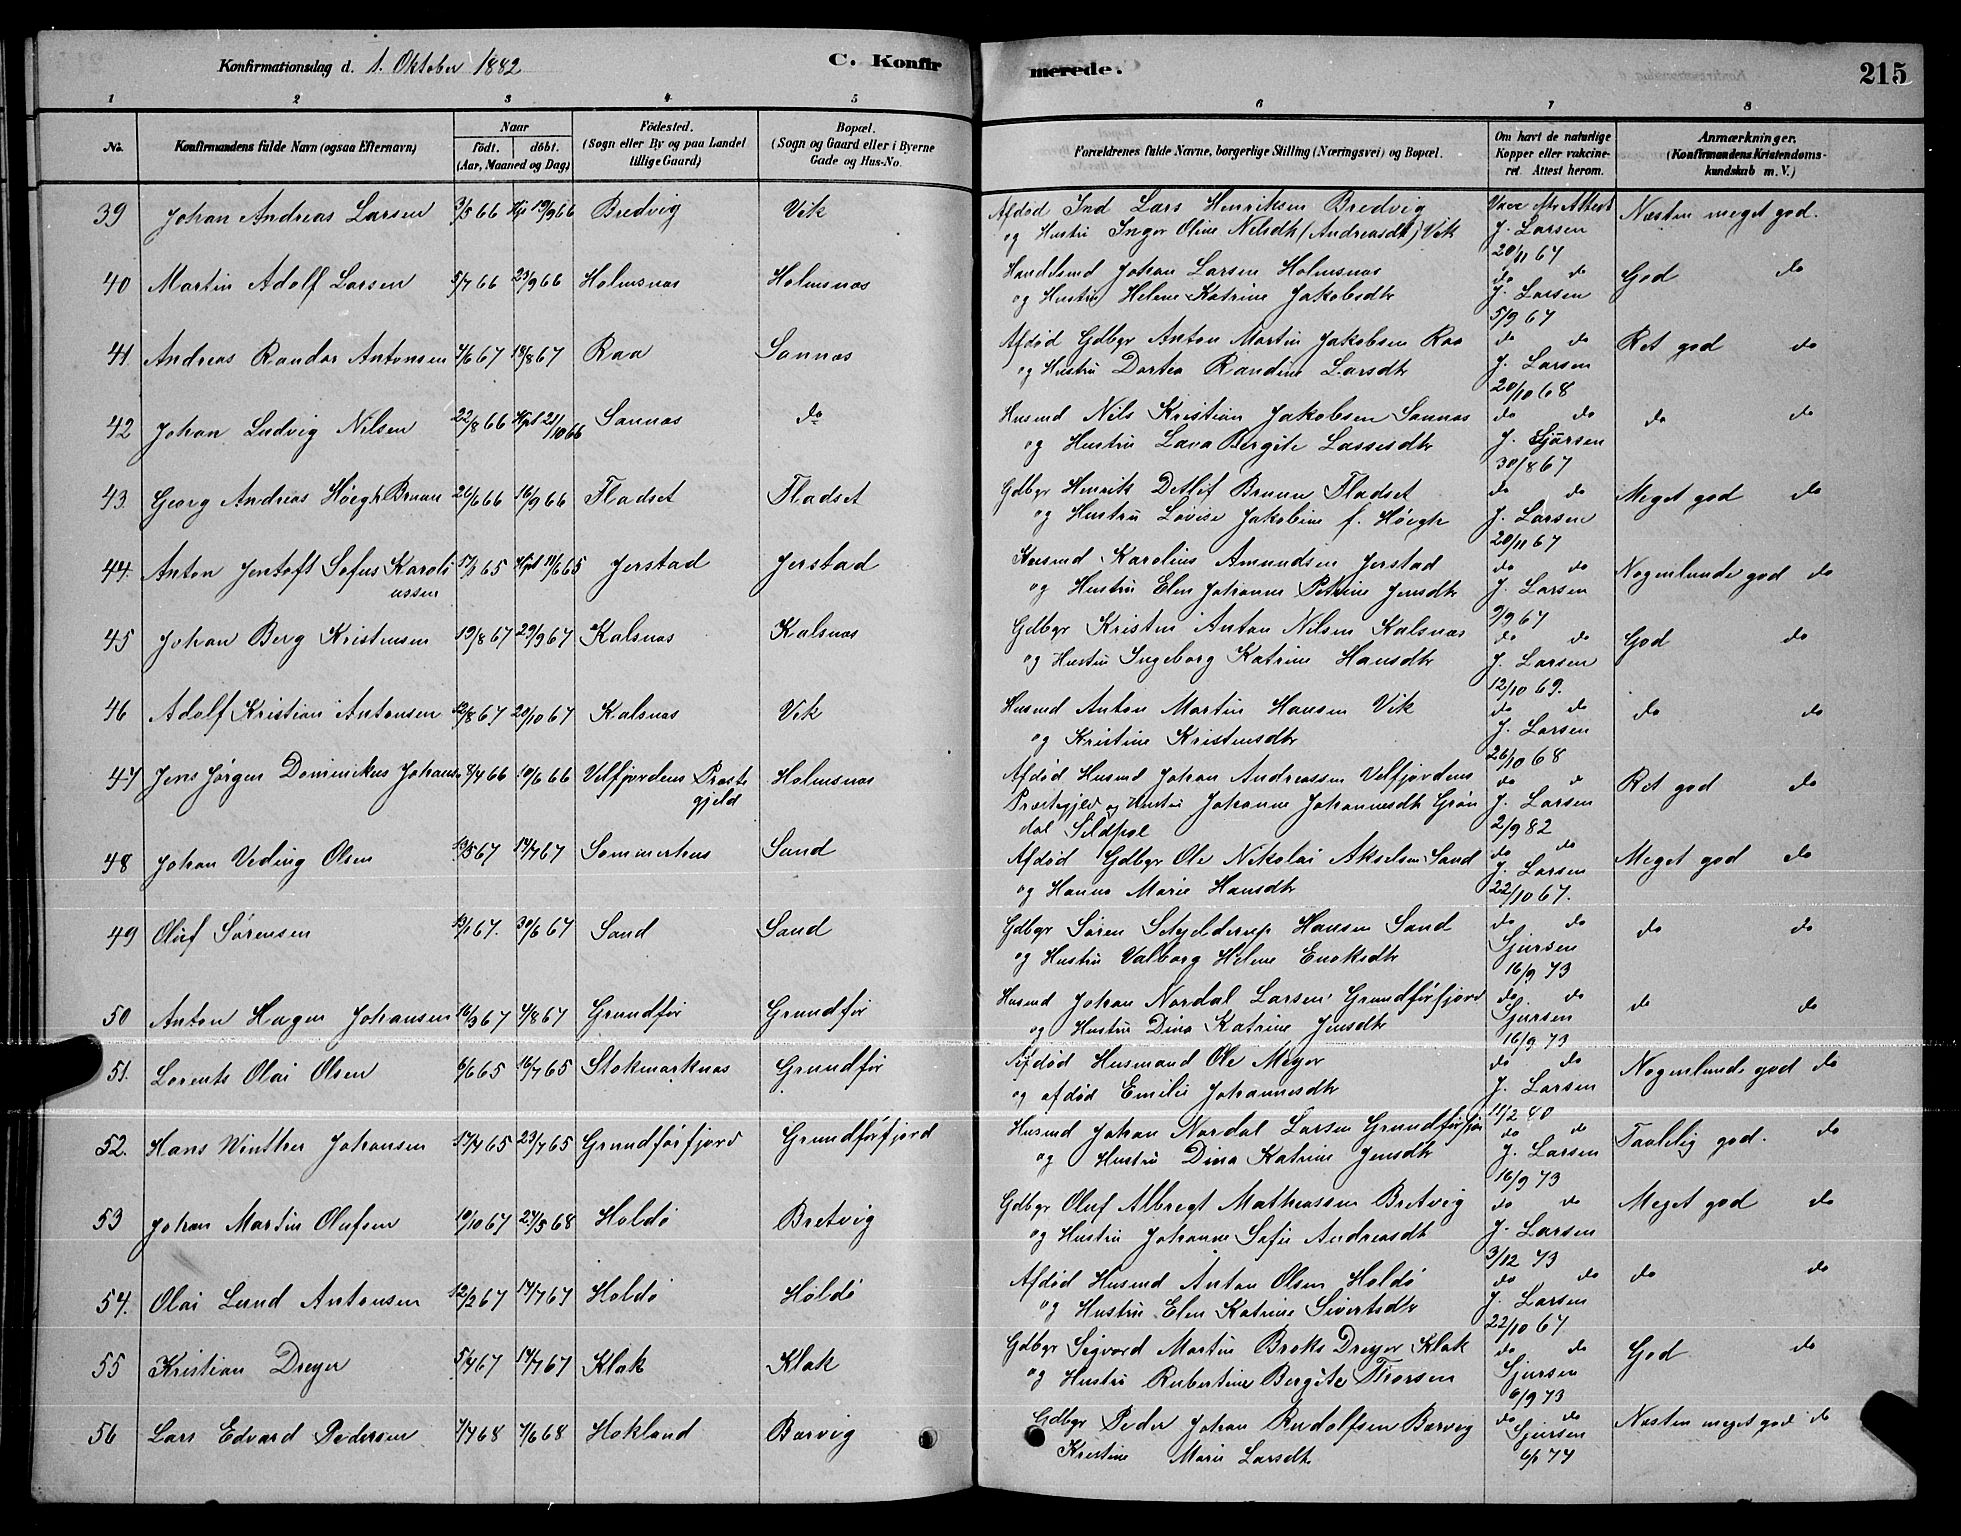 Konfirmationsdag d. 1. Oktober 1882
C. Konfirmerede.
215
1 2 3 4 5 6 7 8
No. Konfirmandens fulde Navn (ogsaa Efternavn) Naar födt. döbt. (Aar, Maaned og Dag) Födested. (Sogn eller By og paa Landet tillige Gaard) Bopæl. (Sogn og Gaard eller i Byerne Gade og Hus-No. Forældrenes fulde Navne, borgerlige Stilling (Næringsvei) og Bopæl. Om havt de naturlige Kopper eller vakcineret. Attest herom. Anmærkninger. (Konfirmandens Kristendomskundskab m. V.)
39 Johan Andreas Larsen 3/5 66 Hjd 19/9 66 Bredvig Vik Afdød Ind Lars Henriksen Bredvig Vacc efter Attest Næsten meget god.
og Hustru Inger Oline Nilsdtr (Andreasdt) Vik J. Larsen 20/11 67
40 Martin Adolf Larsen 5/7 66 23/9 66 Holmsnæs Holmsnæs Johan Larsen Holmsnæs do do God do
og Hustru Helene Katrine Jakobsdtr J. Larsen 5/9 67
41. Andreas Randor Antonsen 4/6 67 18/8 67 Raa Sannæs Afdød Gdbgr Anton Martin Jakobsen Raa do do Ret god do
og Hustru Dortea Randine Larsdtr J. Larsen 20/10 68
42 Johan Ludvig Nilsen 22/8 66 Hjd 21/10 66 Sannæs do Husmd Nils Kristian Jakobsen Sannæs do do do do
og Hustru Lava Bergite Lassesdtr J. Sjursen 30/8 67
43. Georg Andreas Høegh Bruun 26/6 66 16/9 66 Fladset Fladset Gdbgr Henrik Detlif Bruun Fladset do do Meget god do
og Hustru Lovise Jakobine f. Høegh J. Larsen 20/11 67
44. Anton Jentoft Sofus Karoliussen 17/3 65 Hjd 11/6 65 Jerstad Jerstad Husmd Karolius Amundsen Jerstad do do Nogenlunde god do
og Hustru Elen Johanne Petrine Jensdtr J. Larsen 9/9 67
45 Johan Berg Kristensen 19/8 67 29/9 67 Kalsnæs Kalsnæs Gdbgr Kristen Anton Nilsen Kalsnæs do do God do
og Hustru Ingeborg Katrine Hansdtr J. Larsen 12/10 69.
46 Adolf Kristian Antonsen 12/8 67 20/10 67 Kalsnæs Vik Husmd Anton Martin Hansen Vik do do do do
og Kristine Kristensdtr J. Larsen 26/10 68
47 Jens Jørgen Dominikus Johans 8/4 66 10/6 66 Velfjordens Præstegjeld Holmsnæs Afdød Husmd Johan Andreassen Velfjordens do do Ret god do
Præstegjeld og Hustru Johanne Johannesdtr Grøndal Sildpol J. Larsen 2/9 82
48 Johan Veding Olsen 13/5 67 14/7 67 Sommerhus Sand Afdød Gdbgr Ole Nikolai Akselsen Sand do do Meget god do
og Hanna Marie Hansdtr J. Larsen 22/10 67.
49 Oluf Sørensen 13/1 67. 30/6 67 Sand Sand Gdbgr Søren Schjelderup Hansen Sand do do do do
og Hustru Valborg Helene Enoksdtr Sjursen 16/9 73
50 Anton Hagen Johansen 16/3 67 4/8 67 Grundfør Grundfør Husmd Johan Nordal Larsen Grundførfjord do do do do
og Hustru Dina Katrine Jensdtr Sjursen 16/9 73
51. Lorents Olai Olsen 6/6 65 16/7 65 Stokmarknæs Grundfør Afdød Husmand Ole Meyer do do Nogenlunde god do
og afdød Emilie Johannesdtr J. Larsen 11/2 80
52. Hans Winther Johansen 17/4 65 23/7 65 Grundførfjord Grundførfjord Husmd Johan Nordal Larsen Grundførfjor do do Taalelig god. do
og Hustru Dina Katrine Jensdtr J. Larsen 16/9 73
53 Johan Martin Olufsen 19/10 67 24/5 68 Holdø Bretvig Gdbgr Oluf Albregt Mathiassen Bretvig do do Meget god do
og Hustru Johanne Sofie Andreasdt J. Larsen 3/12 73
54. Olai Lund Antonsen 12/2 67 14/7 67 Holdø Holdø Afdød Husmd Anton Olsen Holdø do do do do
og Hustru Elen Katrine Sivertsdtr J. Larsen 22/10 67
55 Kristian Dreyer 5/4 67 14/7 67 Klak Klak Gdbgr Sigvard Martin Broks Dreyer Klak do do God do
og Hustru Rubertine Bergite Thorsen Sjursen 6/9 73
56 Lars Edvard Pedersen 7/4 68 7/6 68 Hokland Barvig Gdbgr Peder Johan Rudolfsen Barvig do do Næsten meget god do
Kristine Marie Larsdt Sjursen 6/1 74